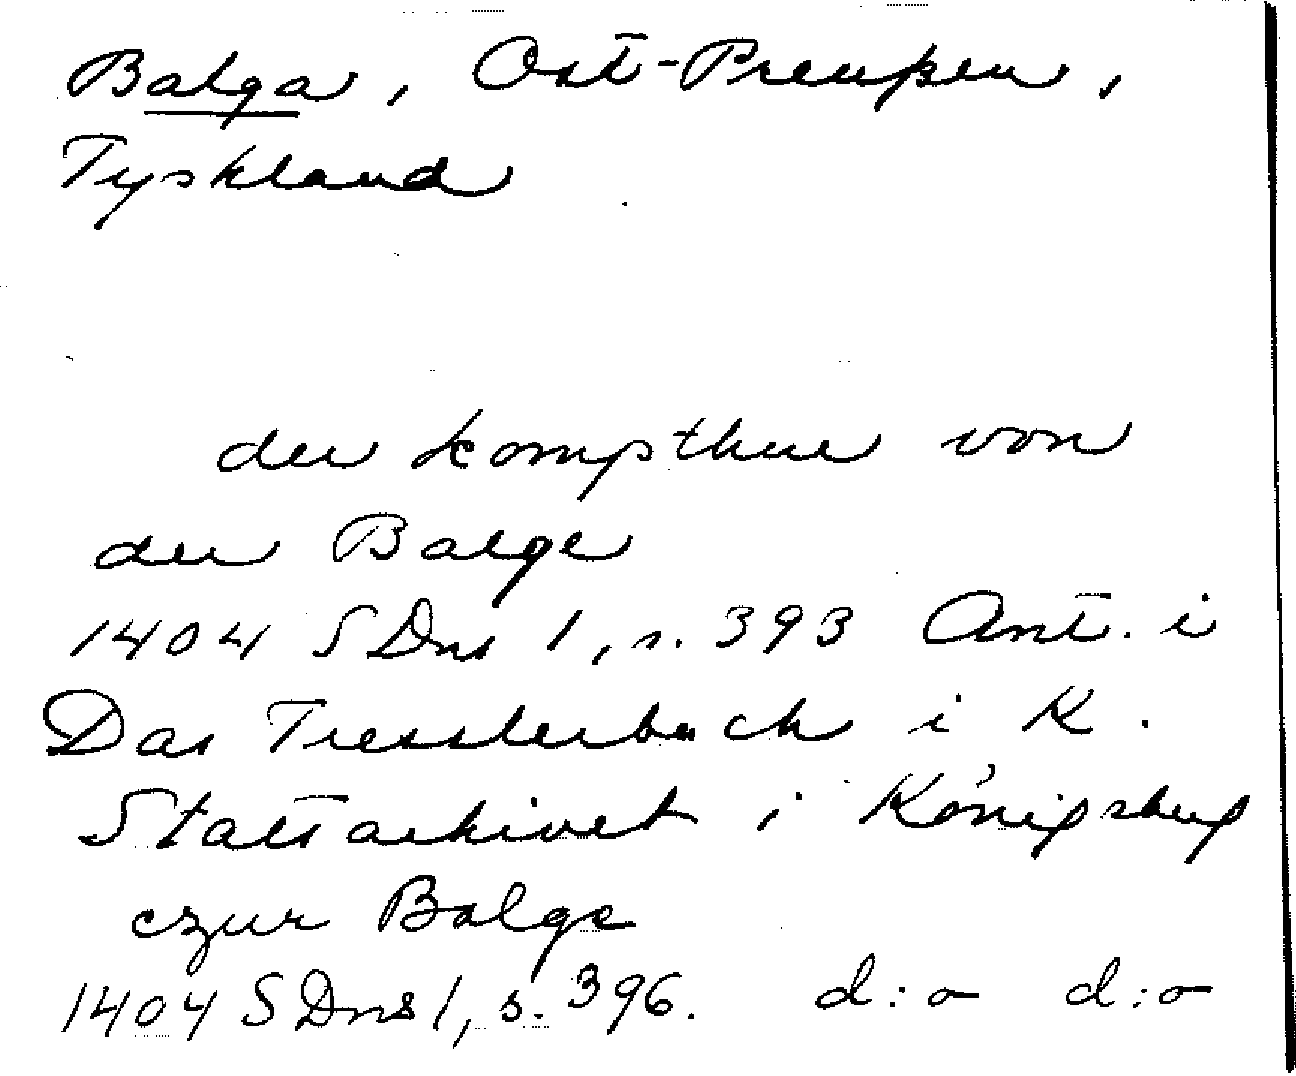 Balga, Ost-Preußen,
Tyskland
der kompthur von
der Balge
1404 SDns 1, s. 393 Ant. i
Das Tresslerbuch i K.
Statsarkivet i Königsberg
czur Balge
1404 SDns 1, s. 396. d:o d:o